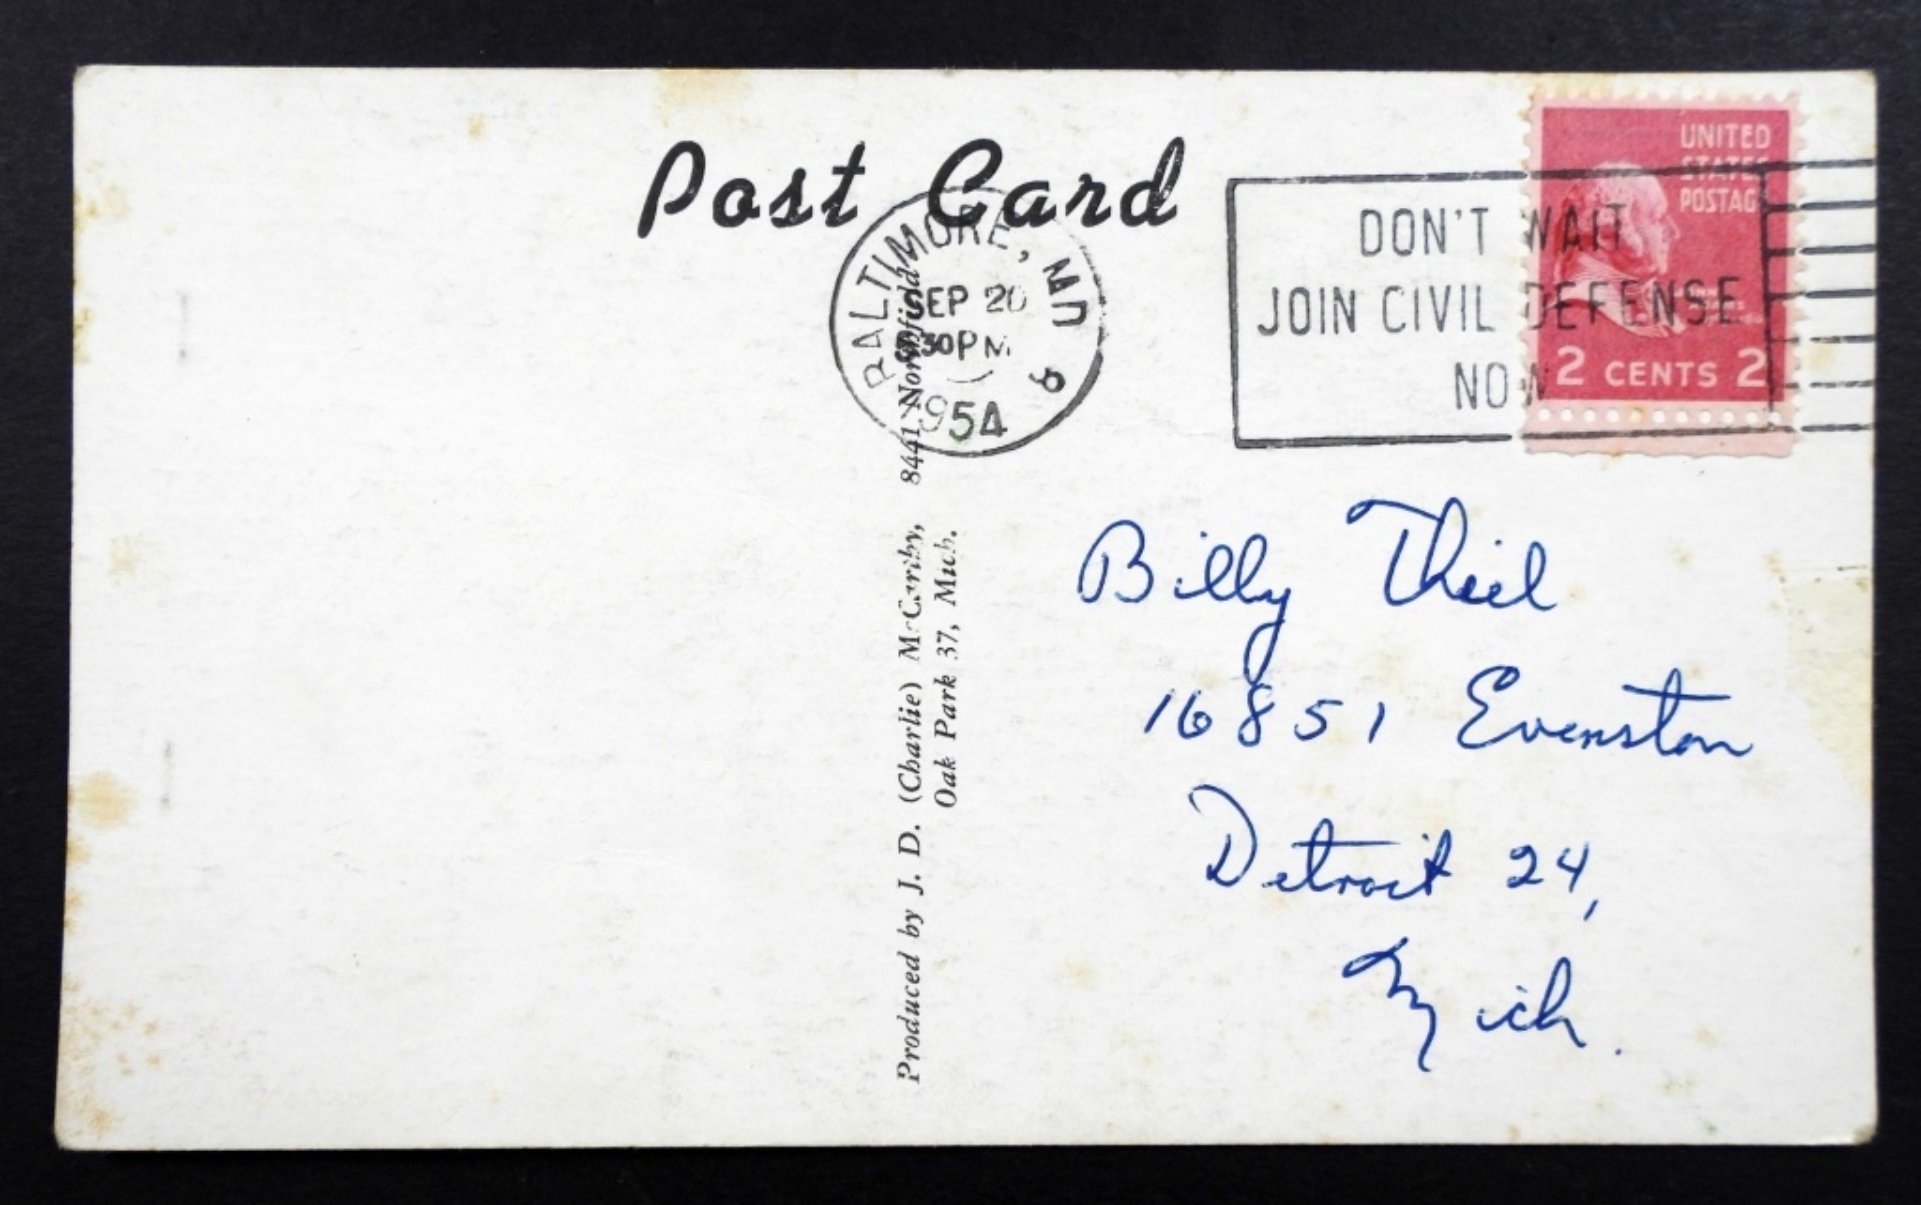 Post Card
BALTIMORE, MD
SEP 20
30 PM
1954
9
DON'T WAIT
JOIN CIVIL DEFENSE
NOW
UNITED
STATES
POSTAGE
2 CENTS 2
Produced by J. D. (Charlie) McCarthy, 8441 Northfield
Oak Park 37, Mich.
Billy Theil
16851 Evenston
Detroit 24,
Mich.